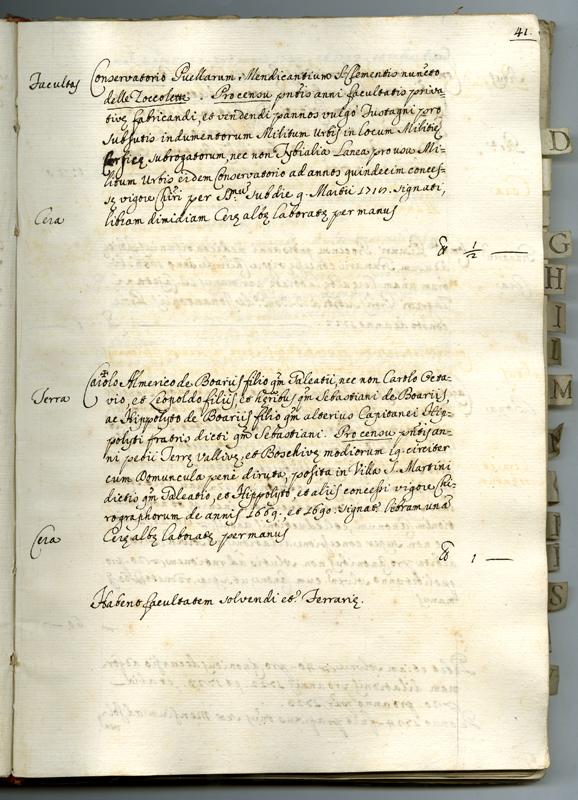 41.
Facultas Conservatorio Puellarum Mendicantium S. Clementis nuncto
delle Zoccolette. Pro censu pntis anni facultatis priva
tive fabricandi, et vendendi pannos vulgo Fustagni pro
subsutis indumentorum Militum Urbis in locum Militiæ
subrogatorum, nec non Tybialia Lanea pro usu Mi-
litum Urbis eidem Conservatorio ad annos quindecim conces-
sæ vigore Chiri per S. sub die 9. Martii 1717. signati,
Cera libram dimidiam Ceræ albæ laboratæ per manus
1/2 —
Terra Carolo Almerico de Boariis filio qm Galeatii, nec non Carolo Octa-
vio, et Leopoldo filiis, et heredibus qm Sebastiani de Boariis,
ac Hippolyto de Boariis filio qm alterius Capitanei Hip-
polyti fratris dicti qm Sebastiani. Pro censu pntis an-
ni petii Terræ Vallivæ, et Boschivæ modiorum 19. circiter
cum Domuncula pene diruta, posita in Villa S. Martini
dictis qm Galeatio, et Hippolyto, et aliis concessi vigore Chi-
rographorum de annis 1669. et 1690. signat. libram unã
Cera Ceræ albæ laboratæ per manus
1 —
Habent facultatem solvendi et. Ferrariæ.
D
G
H
I
I
M
I
S